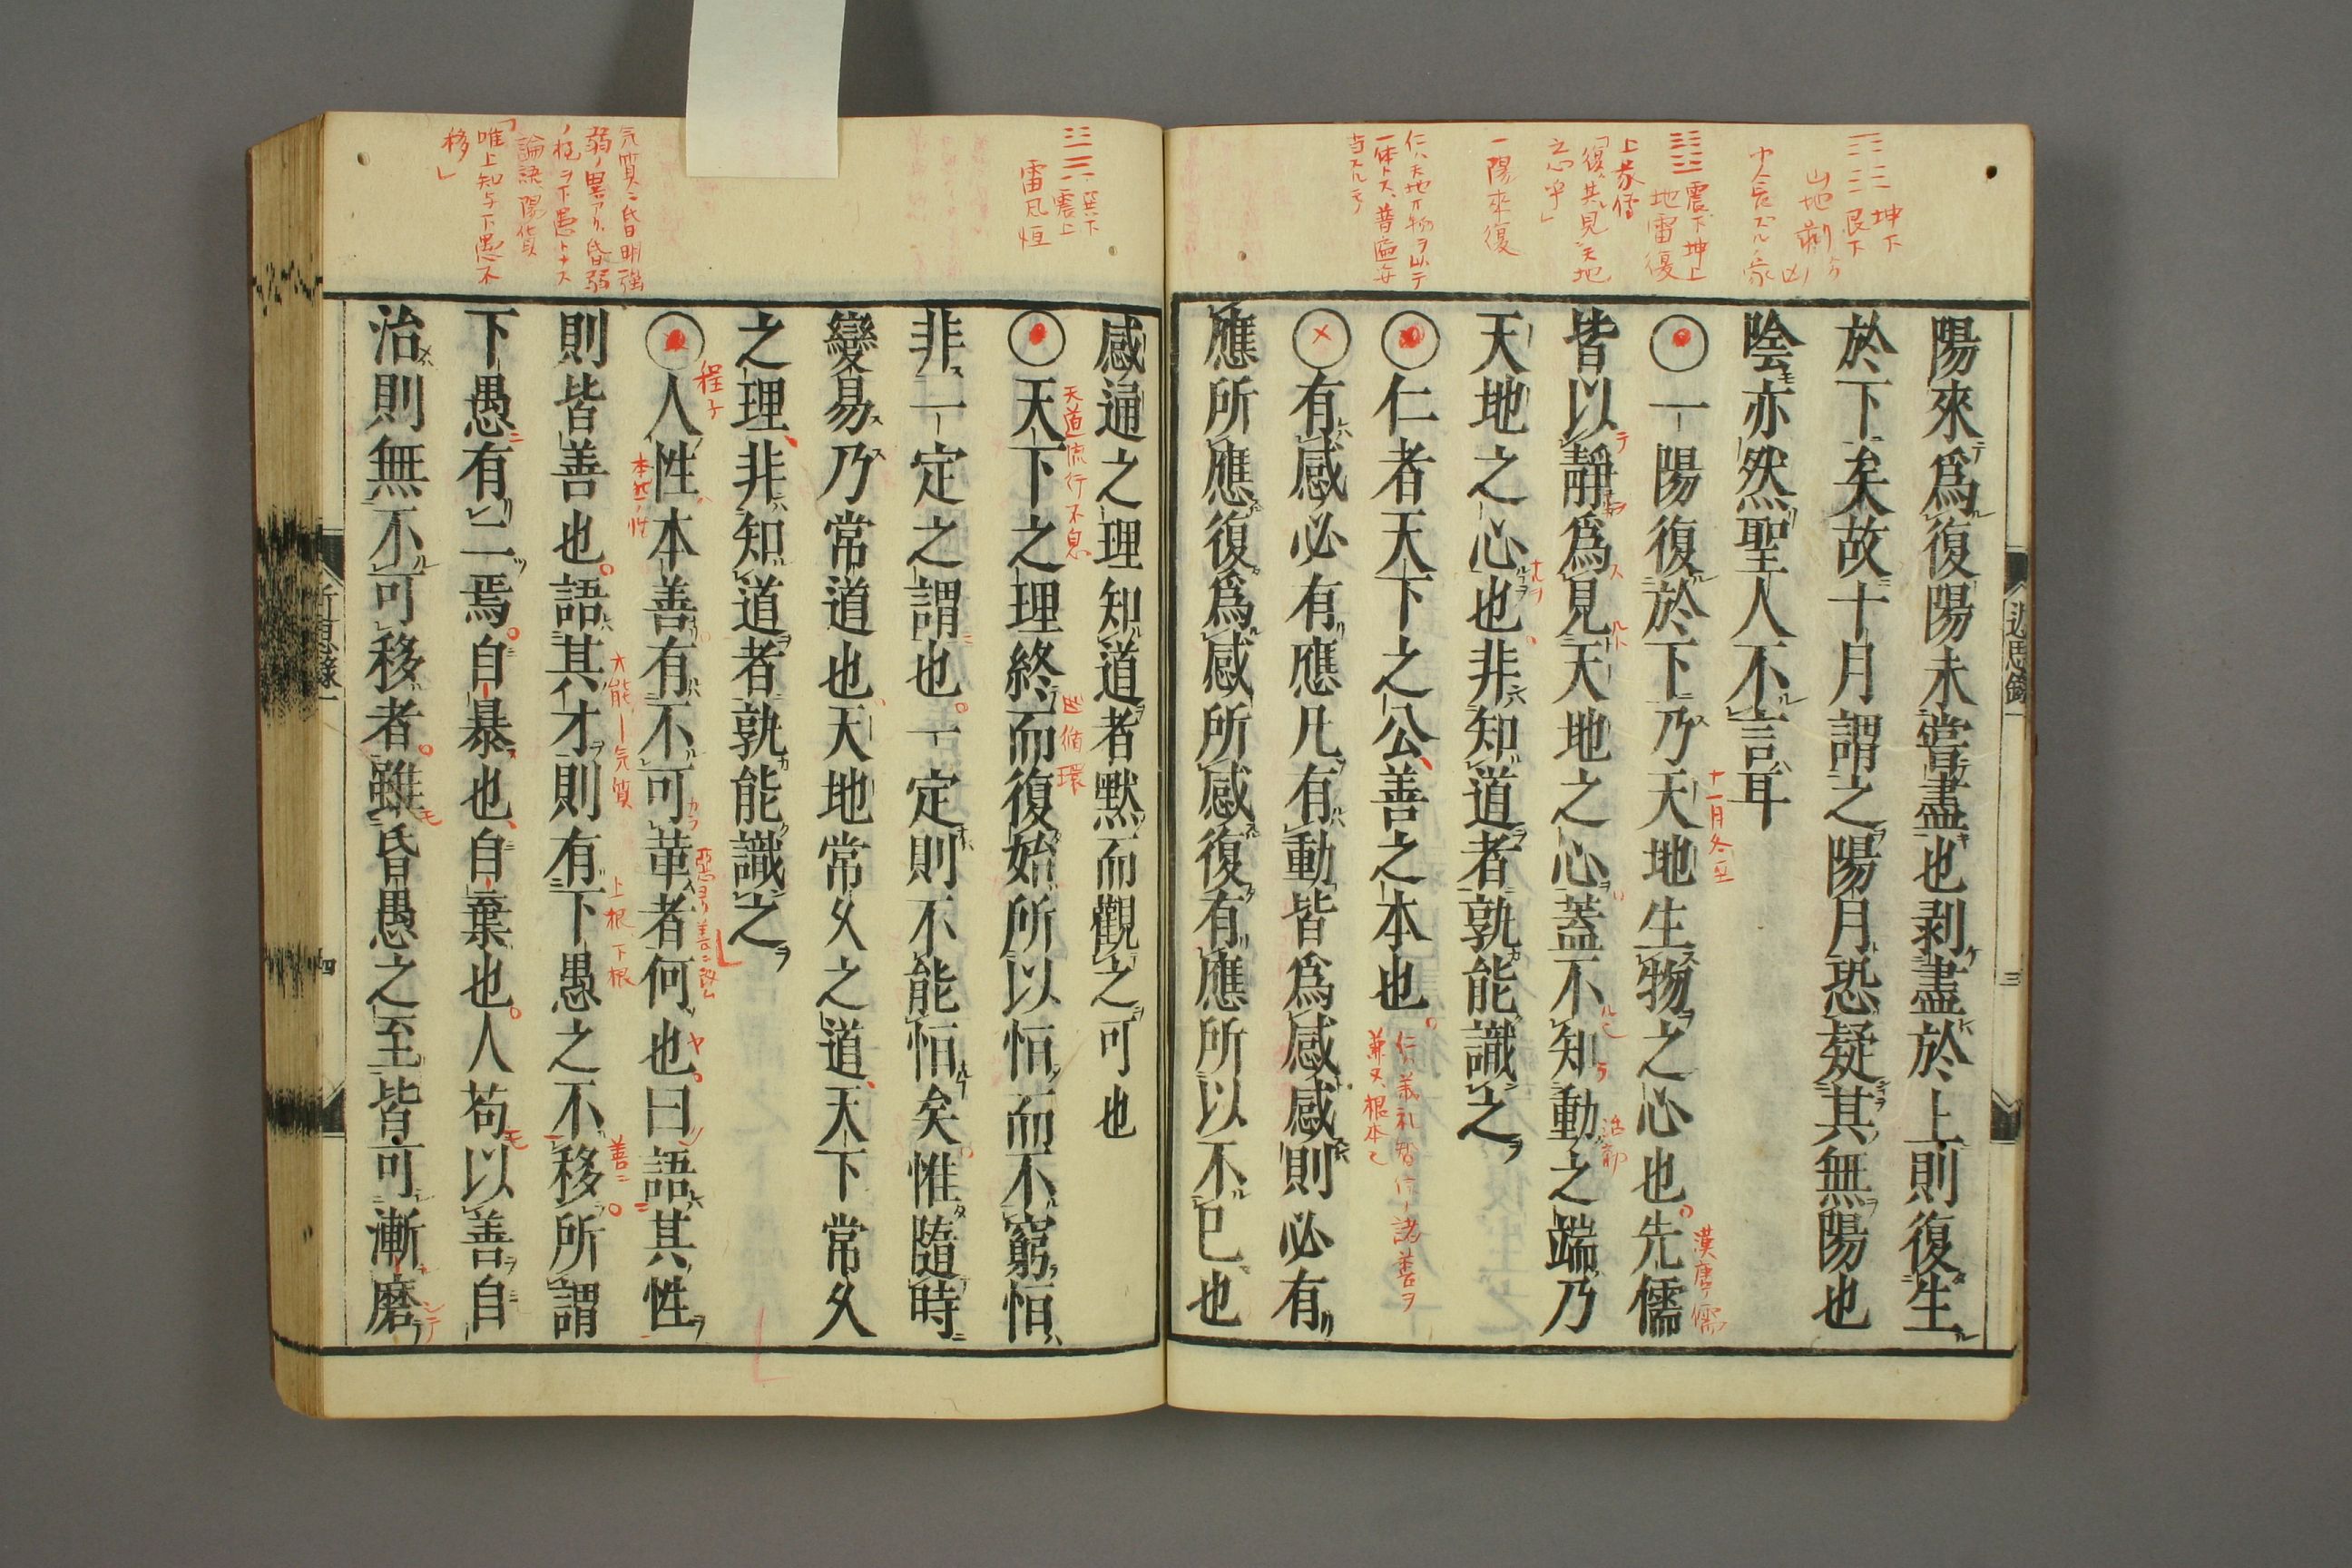 陽來爲復陽未嘗盡也剥盡於上則復生
於下矣故十月謂之陽月恐疑其無陽也
陰亦然聖人不言耳
○一陽復於下乃天地生物之心也先儒
皆以靜爲見天地之心蓋不知動之端乃
天地之心也非知道者孰能識之
○仁者天下之公善之本也
○有感必有應凡有動皆爲感感則必有
應所應復爲感所感復有應所以不已也
近思錄一
三
感通之理知道者默而觀之可也
○天下之理終而復始所以恒而不窮恒
非一定之謂也一定則不能恒矣惟隨時
變易乃常道也天地常久之道天下常久
之理非知道者孰能識之
○人性本善有不可革者何也曰語其性
則皆善也語其才則有下愚之不移所謂
下愚有二焉自暴也自棄也人苟以善自
治則無不可移者雖昏愚之至皆可漸磨
四
坤下
艮下
山地剥
震下坤上
地雷復
上彖傳
「復其見天地
之心乎」
一陽來復
仁ハ天地万物ヲ以テ
巽下
震上
雷風恒
論語、陽貨
「唯上知与下愚不
移」
十一月冬至
漢唐ノ儒
天道流行不息
循環
程子
上根、下根